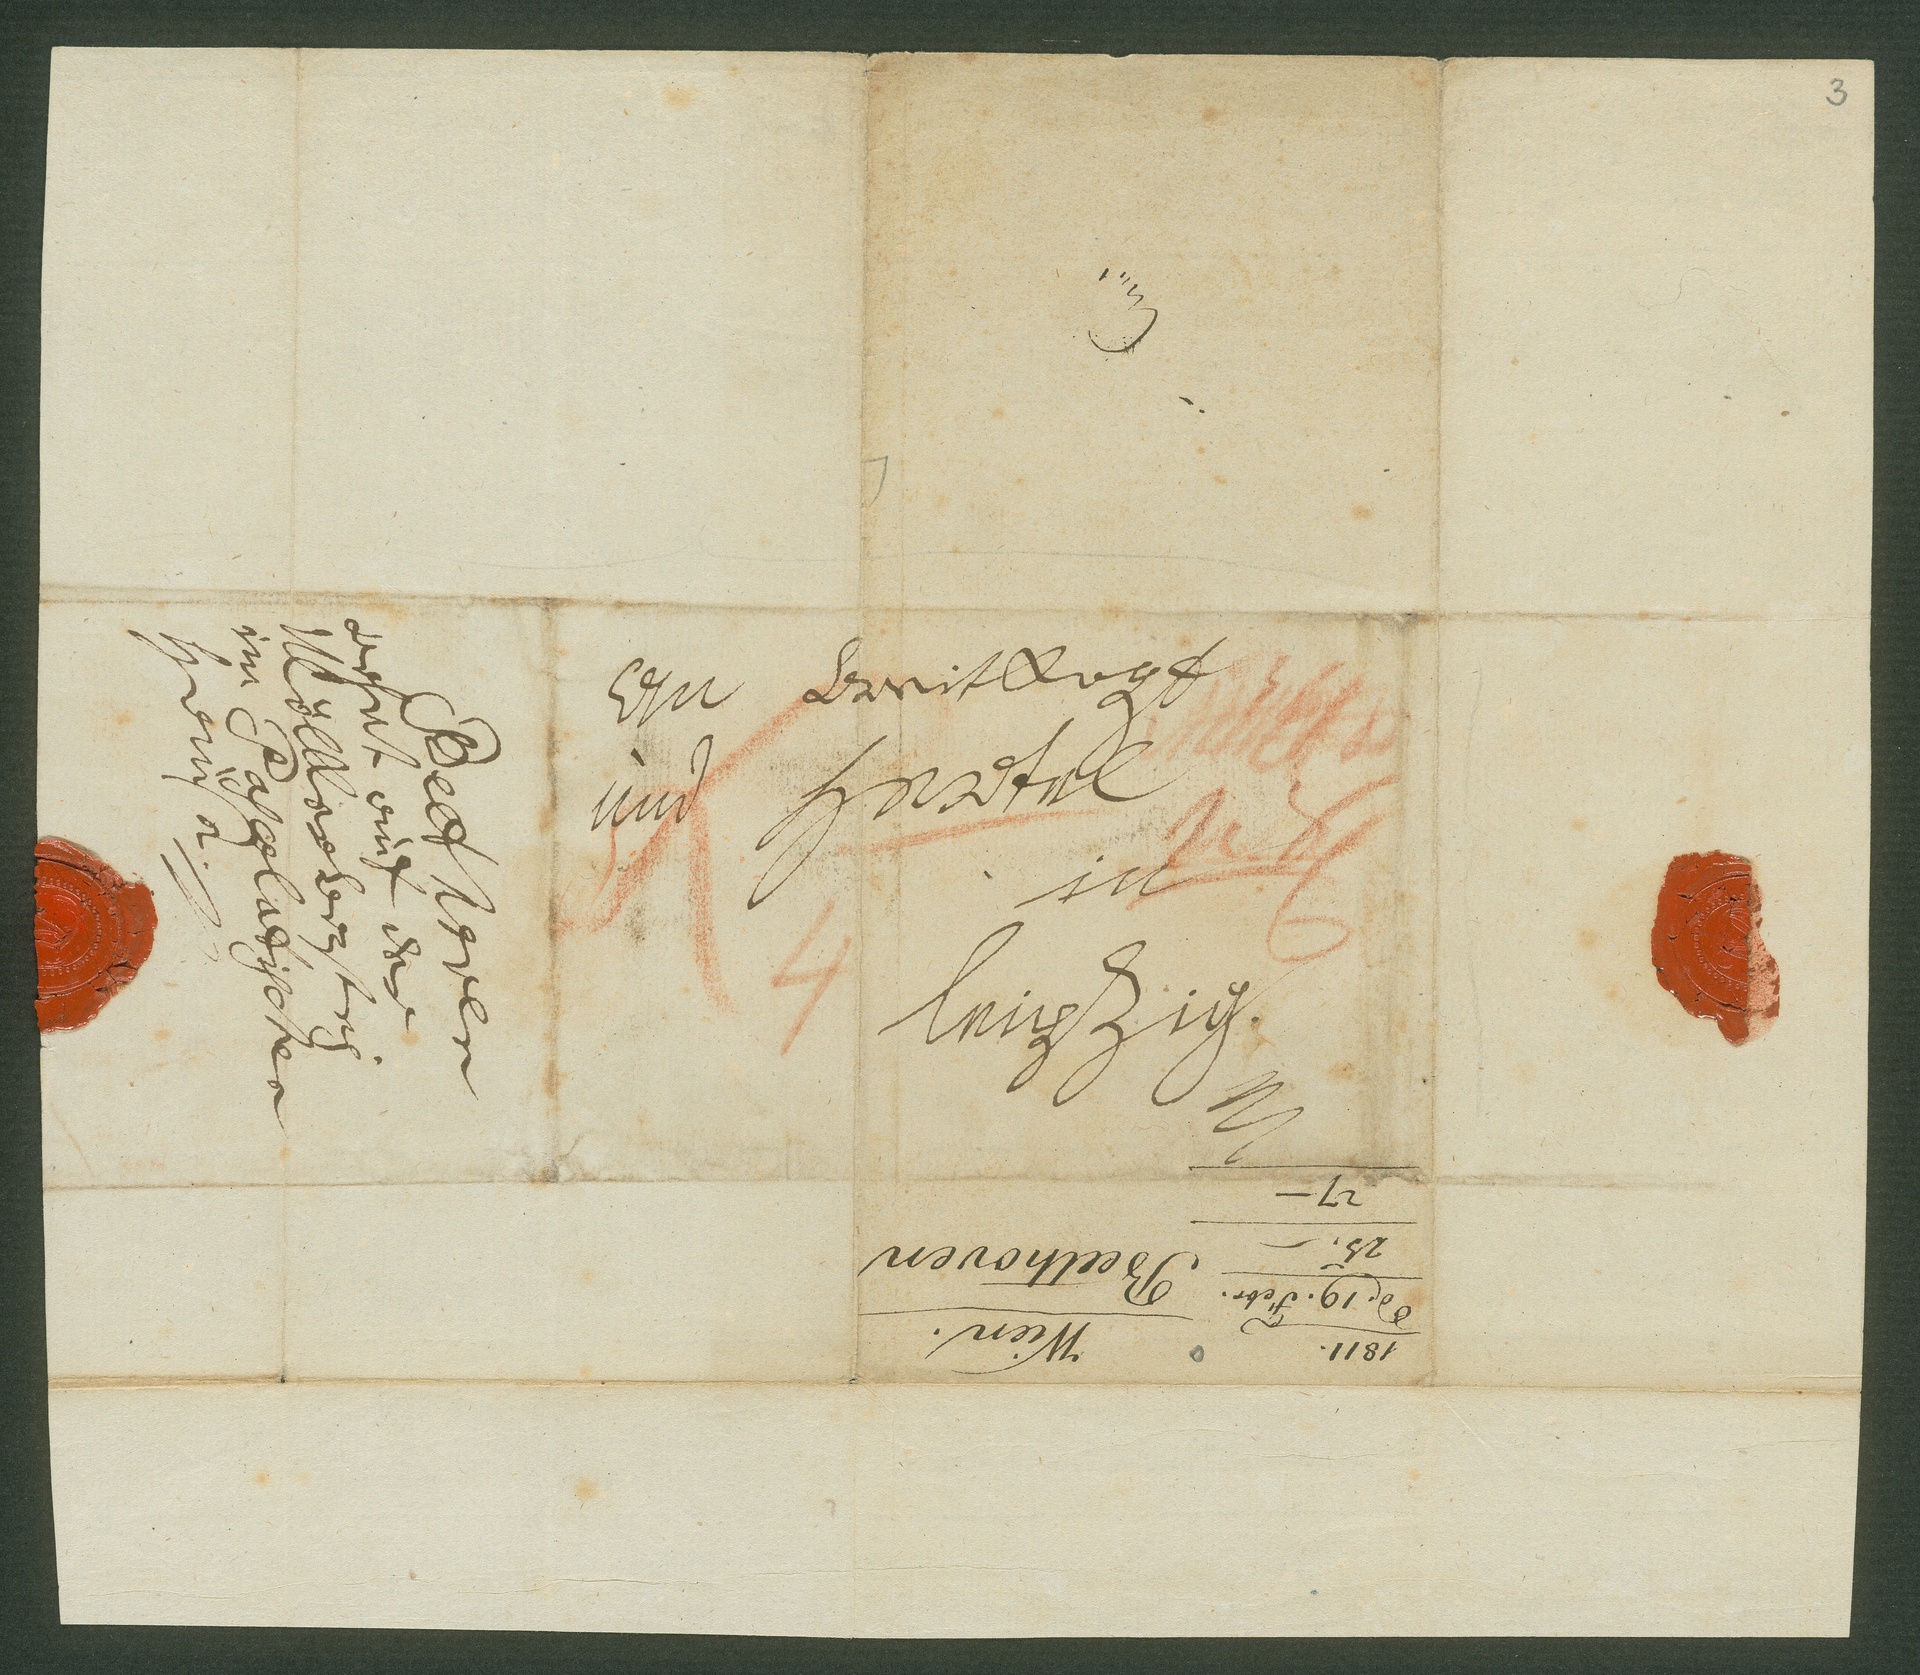 3
An Breitkopf
und Härtel
in
Leipzig.
4
Beethoven
wohnt auf der
Mölkerbastej
im Pasqualatischen
Hause.
1811.
d. 19. Febr.
25.
27 –
Wien.
Beethoven